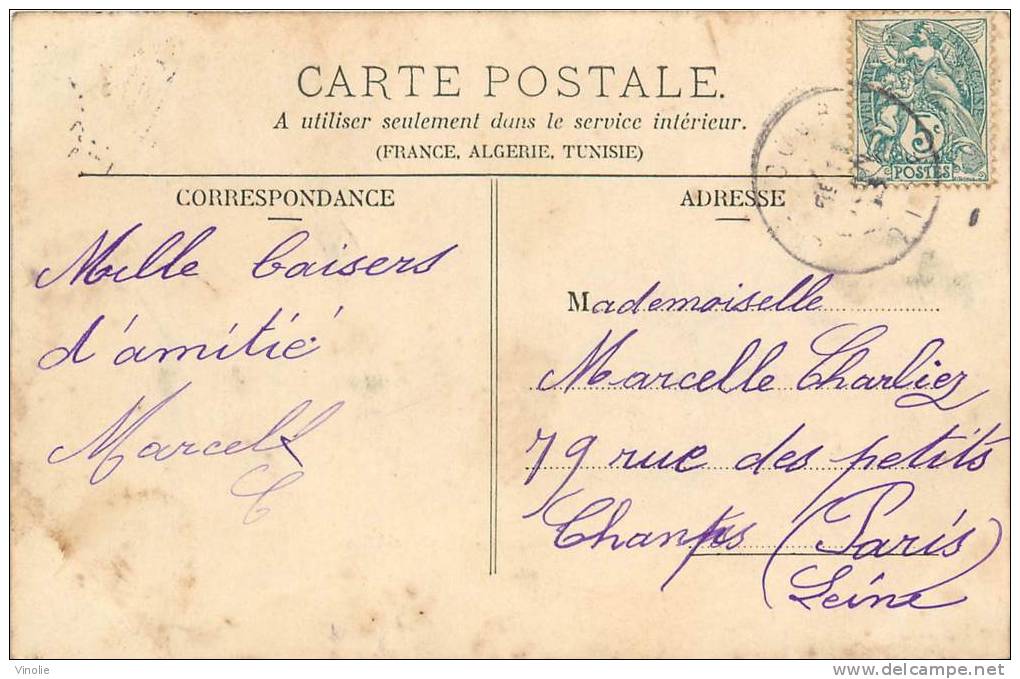 CARTE POSTALE.
A utiliser seulement dans le service intérieur.
(FRANCE, ALGERIE, TUNISIE)
CORRESPONDANCE
Mille baisers
d'amitié
Marcell
C
ADRESSE
5c
POSTES
Mademoiselle
Marcelle Charliez
79 rue des petits
Champs (Paris)
Seine
Vinolie
www.delcampe.net